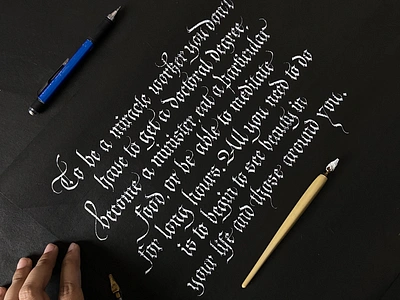 To be a miracle worker you don't
have to get a doctoral degree,
become a minister, eat a particular
food or be able to meditate
for long hours. All you need to do
is to begin to see beauty in
your life and those around you.